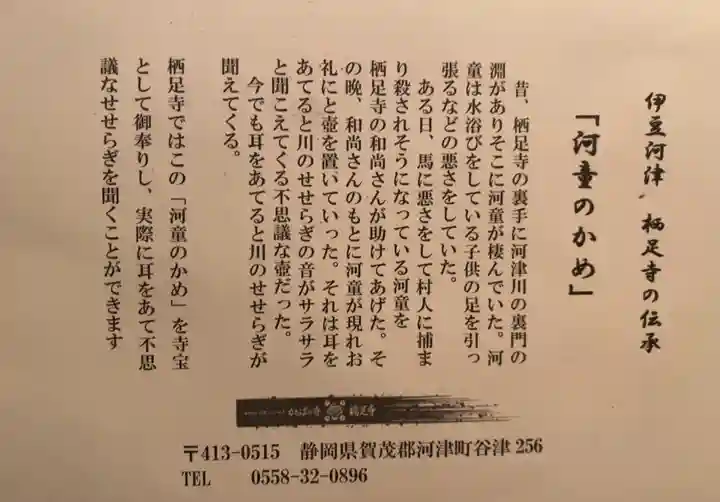 伊豆河津 栖足寺の伝承
「河童のかめ」
昔、栖足寺の裏手に河津川の裏門の
淵がありそこに河童が棲んでいた。河
童は水浴びをしている子供の足を引っ
張るなどの悪さをしていた。
ある日、馬に悪さをして村人に捕ま
り殺されそうになっている河童を
栖足寺の和尚さんが助けてあげた。そ
の晩、和尚さんのもとに河童が現れお
礼にと壺を置いていった。それは耳を
あてると川のせせらぎの音がサラサラ
と聞こえてくる不思議な壺だった。
今でも耳をあてると川のせせらぎが
聞えてくる。
栖足寺ではこの「河童のかめ」を寺宝
として御奉りし、実際に耳をあて不思
議なせせらぎを聞くことができます
かっぱの寺 栖足寺
〒413-0515 静岡県賀茂郡河津町谷津256
TEL 0558-32-0896